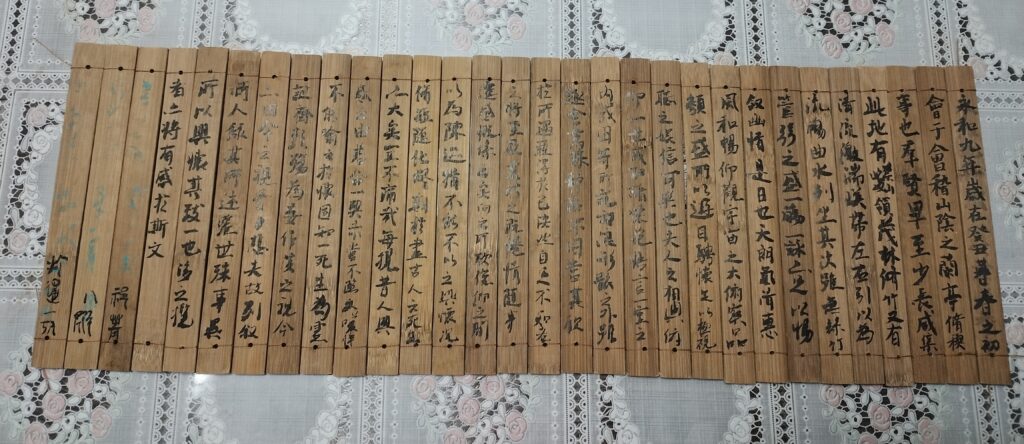 永和九年歲在癸丑暮春之初
會于會稽山陰之蘭亭脩禊
事也羣賢畢至少長咸集
此地有崇領茂林脩竹又有
清流激湍暎帶左右引以為
流觴曲水列坐其次雖無絲竹
管弦之盛一觴一詠亦足以暢
叙幽情是日也天朗氣清惠
風和暢仰觀宇宙之大俯察品
類之盛所以遊目騁懷足以極視
聽之娛信可樂也夫人之相與俯
仰一世或取諸懷抱悟言一室之
內或因寄所託放浪形骸之外雖
趣舍萬殊靜躁不同當其欣
於所遇暫得於己快然自足不知老
之將至及其所之既惓情隨事
遷感慨係之矣向之所欣俛仰之間
以為陳迹猶不能不以之興懷況
脩短隨化終期於盡古人云死生
亦大矣豈不痛哉每攬昔人興
感之由若合一契未嘗不臨文嗟悼
不能喻之於懷固知一死生為虛
誕齊彭殤為妄作後之視今
亦由今之視昔悲夫故列叙
時人錄其所述雖世殊事異
所以興懷其致一也後之攬
者亦將有感於斯文